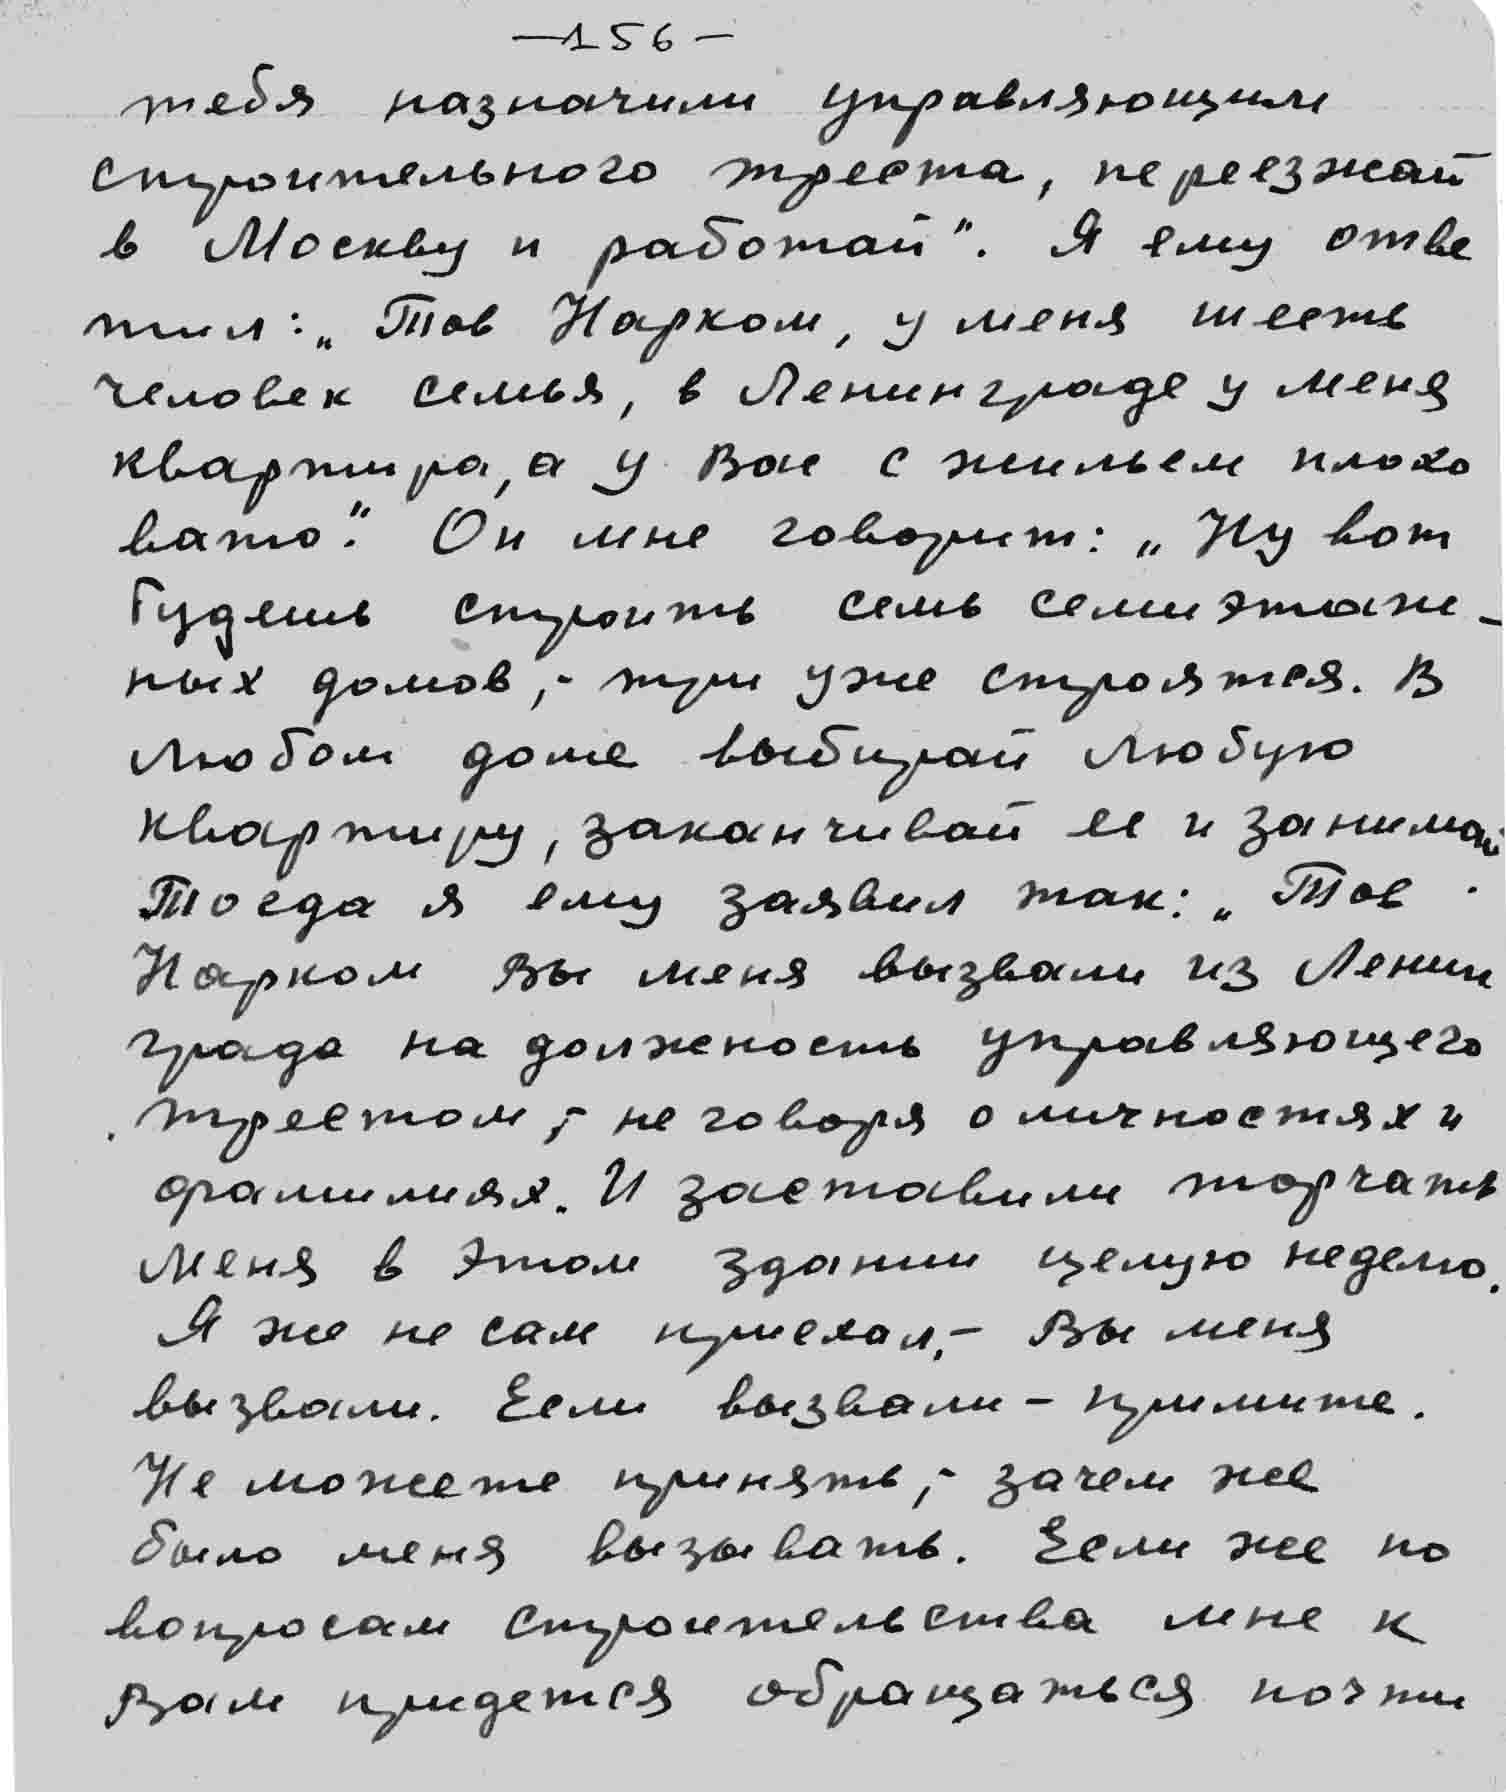 —156—
тебя назначили управляющим
строительного треста, переезжай
в Москву и работай". Я ему отве
тил: „Тов Нарком, у меня шесть
человек семья, в Ленинграде у меня
квартира, а у Вас с жильем плохо
вато". Он мне говорит: „Ну вот
будешь строить семь семиэтаж-
ных домов,- три уже строятся. В
любом доме выбирай любую
квартиру, заканчивай ее и занимай.
Тогда я ему заявил так: „Тов
Нарком Вы меня вызвали из Ленин
града на должность управляющего
трестом,- не говоря о личностях и
фамилиях. И заставили торчать
меня в этом здании целую неделю.
Я же не сам приехал,- Вы меня
вызвали. Если вызвали - примите.
Не можете принять,- зачем же
было меня вызывать. Если же по
вопросам строительства мне к
Вам придется обращаться почти